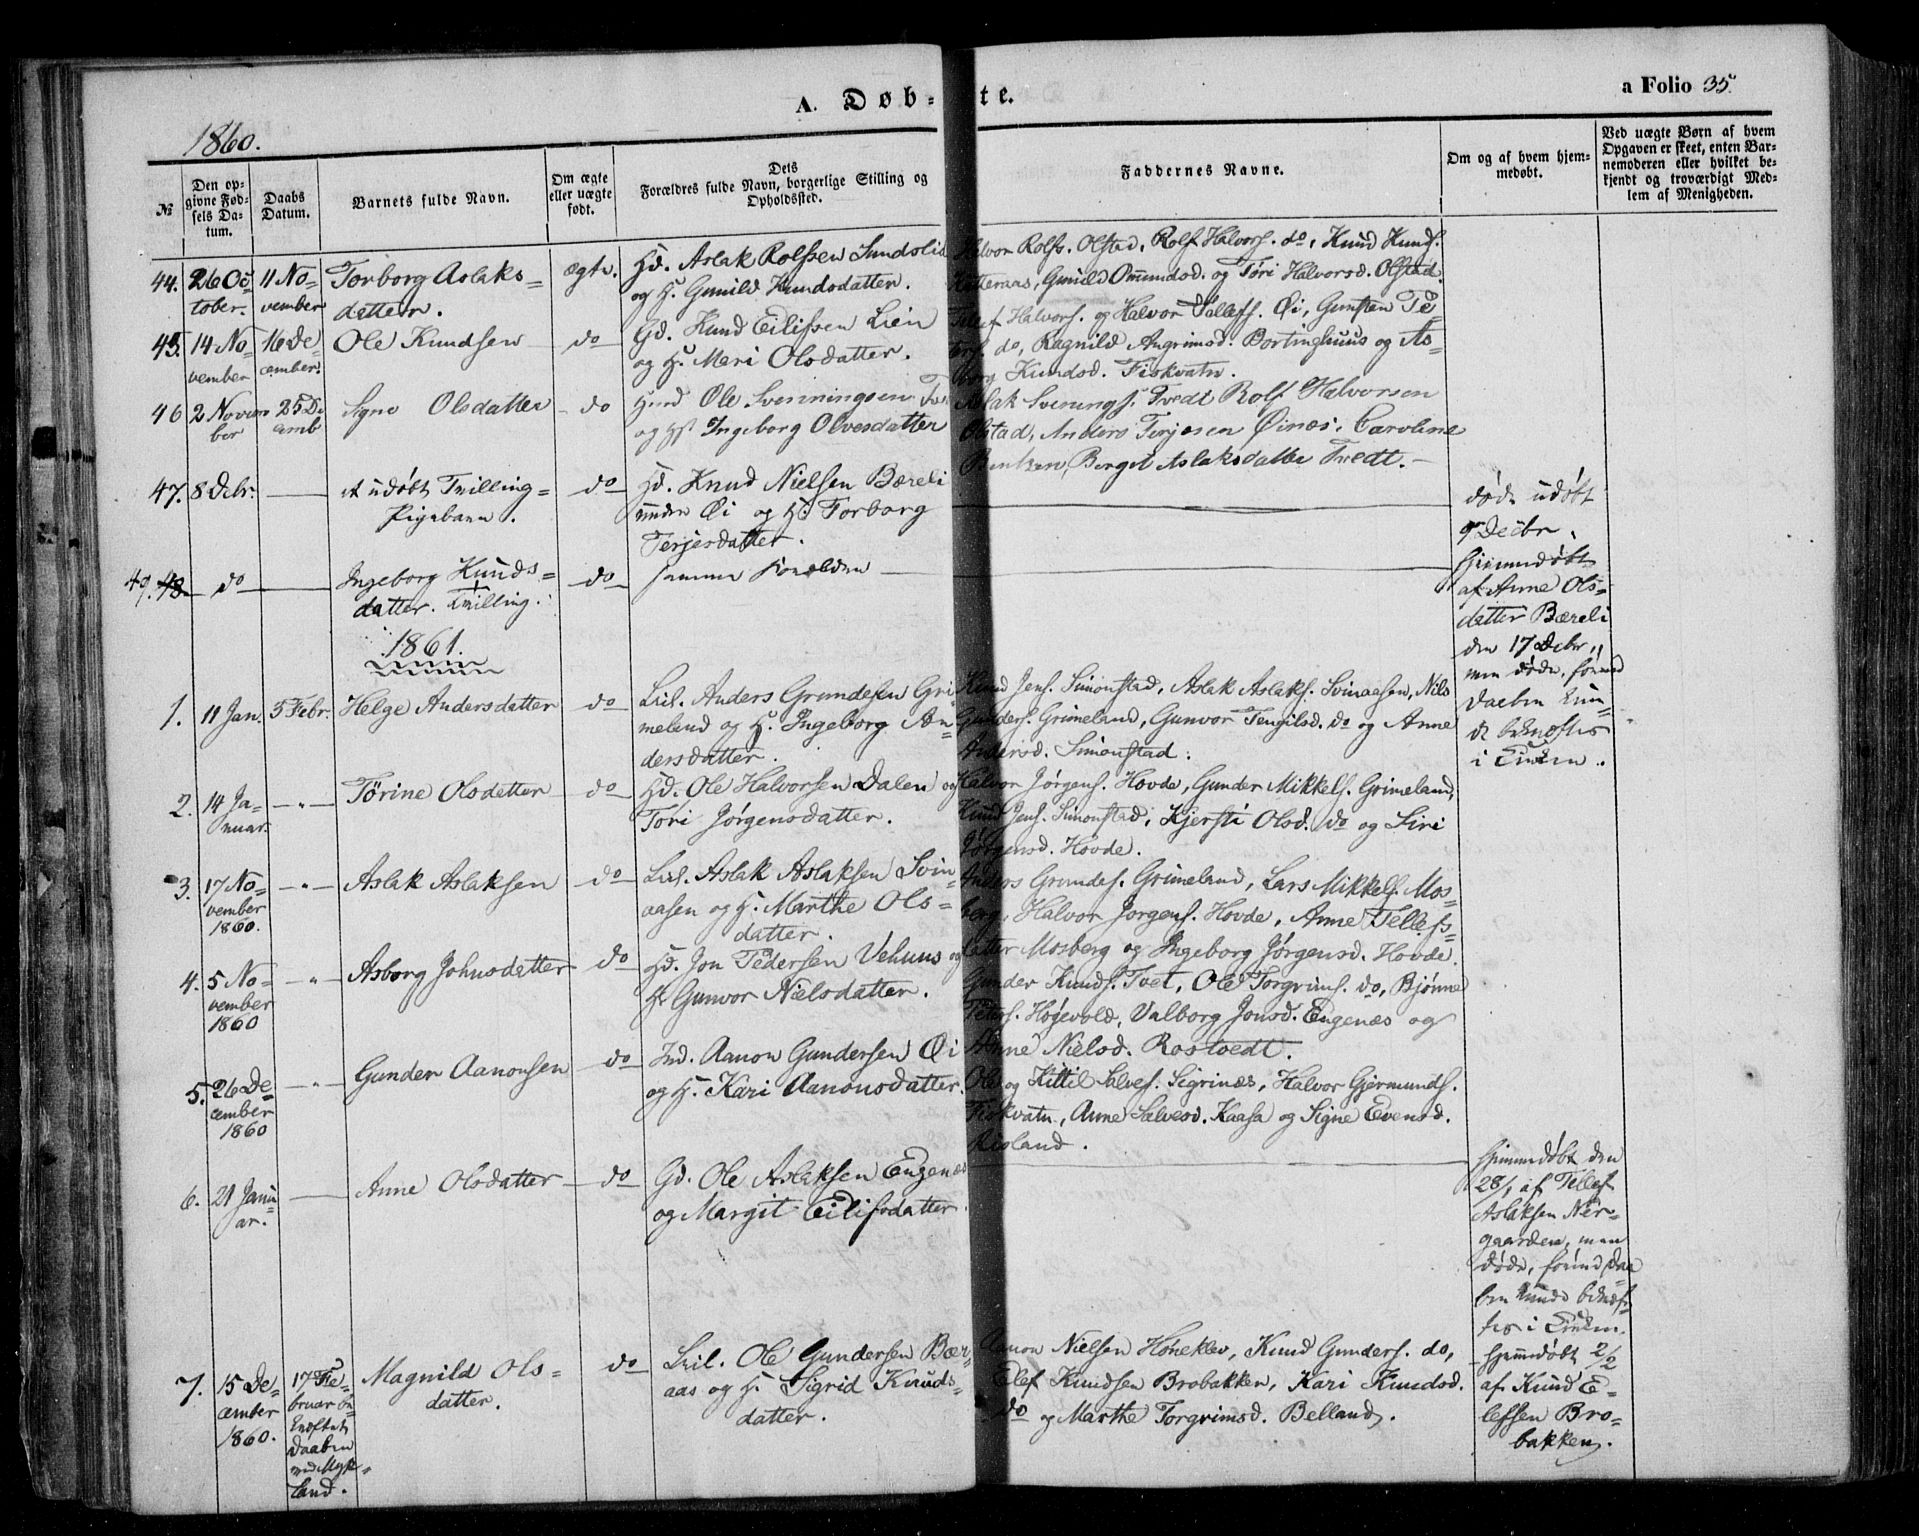 A. Døb-te.
a Folio 35.
1860.
№
Den op-
givne Fød-
sels Da-
tum.
Daabs
Datum.
Barnets fulde Navn.
Om ægte
eller uægte
født.
Dets
Forældres fulde Navn, borgerlige Stilling og
Opholdssted.
Faddernes Navne.
Om og af hvem hjem-
medøbt.
Ved uægte Børn af hvem
Opgaven er skeet, enten Bar-
nemoderen eller hvilket be-
kjendt og troværdigt Med-
lem af Menigheden.
44.
26 Oc-
tober.
11 No-
vember
Torborg Aslaks-
datter.
ægte.
Hd. Aslak Rolfsen Sundslid
og H. Gunild Knudsdatter.
Halvor Rolfs. Olstad, Rolf Halvors. do, Knud Knuds.
Gunild Ommundsd. og Tøri Halvorsd. Olstad.
45.
14 No-
vember
16 De-
cember.
Ole Knudsen
do
Gd. Knud Eilifsen Lien
og H. Mari Olsdatter.
Tellef Halvors. og Halvor Tellefs. Øi, Gunsten Te-
do, Ragnild Angrimsd. Bortinghuus og As-
borg Knudsd. Fiskvatn.
46
2 Novem
ber
25 De
cemb
Signe Olsdatter
do
Huusd Ole Svenningsen Tve
og H. Ingeborg Olvesdatter
Aslak Svenings. Tvedt Rolf Halvorsen
Olstad, Anders Terjesen Øinæs, Caroline
Bentzen, Berget Aslaksdatter Tvedt.
47.
8 Debr.
et udøbt Tvilling-
Pigebarn.
do
Hd. Knud Nielsen Bæreli
under Øi og H. Torborg
Terjesdatter.
døde udøbt
9 Decbr.
49. 48
do
Ingeborg Knuds-
datter. Tvilling.
do
samme Forældre
hjemmedøbt
af Anne Ols-
datter Bæreli
den 17 Debr.,
men døde, førend
Daaben kun-
de bekræftes
i Kirken.
1861.
1.
11 Jan.
5 Febr.
Helge Andersdatter
do
Leil. Anders Grundesen Gri-
meland og H. Ingeborg An-
dersdatter.
Knud Jens. Simonstad, Aslak Aslaks. Svinaasen, Nils
Gunders. Grimeland, Gunvor Tengilsd. do og Anne
Andersd. Simonstad.
2.
14 Ja-
nuar.
-"-
Tørine Olsdatter
do
Hd. Ole Halvorsen Dalen og
Tøri Jørgensdatter.
Halvor Jørgens. Hovde, Gunder Mikkels. Grimeland,
Knud Jens. Simonstad, Kjersti Olsd. do og Siri
Jørgensd. Hovde.
3.
17 No-
vember
1860.
-"-
Aslak Aslaksen
do
Leil. Aslak Aslaksen Svin-
aasen og H. Marthe Ols-
datter.
Anders Grundes. Grimeland, Lars Mikkels. Mos-
berg, Halvor Jørgens. Hovde, Anne Tellefs-
datter Mosberg og Ingeborg Jørgensd. Hovde.
4.
5 No-
vember
1860
"
Asborg Johnsdatter
do
Hd. Jon Pedersen Vehuus og
H. Gunvor Nielsdatter.
Gunder Knuds. Tvet, Ole Torgrims. do, Bjønne
Peters. Høgevold, Valborg Jonsd. Eugenæs og
Anne Nielsd. Rostvedt.
5.
26 De-
cember
1860
-"-
Gunder Aanonsen
do
Ind. Aanon Gundersen Øi
og H. Kari Aanonsdatter.
Ole og Kittil Salves. Sigrinæs, Halvor Gjermunds.
Fiskvatn, Anne Salvesd. Kaasa og Signe Evensd.
Risland.
6.
21 Janu-
ar.
Anne Olsdatter
do
Gd. Ole Aslaksen Eugenæs
og Margit Eilifsdatter.
hjemmedøbt den
28/1 af Tellef
Aslaksen Nér-
gaarden, men
døde, førend Daa
ben kunde bekræf-
tes i Kirken.
7.
15 De-
cember
1860.
17 Fe-
bruar
Daaben
ved Myk-
land.
Magnild Ols-
datter.
do
Leil. Ole Gundersen Bær-
aas og H. Sigrid Knuds-
datter.
Aanon Nielsen Høneklev, Knud Gunders. do,
Elef Knudsen Brobakken, Kari Knudsd.
do og Marthe Torgrimsd. Belland.
hjemmedøbt 2/2
af Knud E-
lefsen Bro-
bakken.